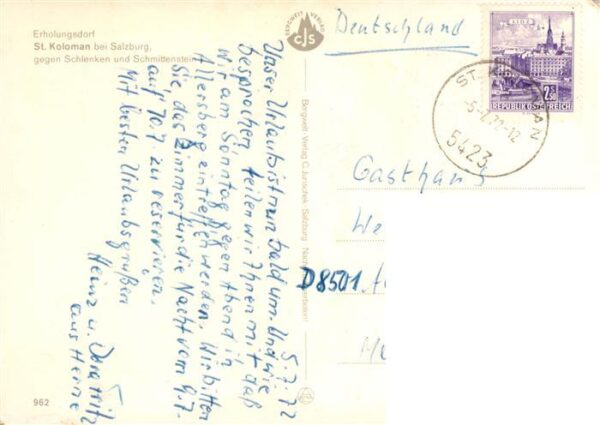 Erholungsdorf
St. Koloman bei Salzburg,
gegen Schlenken und Schmittenstein
BERGWELT VERLAG
CJS
Deutschland
LINZ
2.50
REPUBLIK ÖSTERREICH
ST. KOLOMAN
-5.-7.72-12
5423
5.7.72
Unser Urlaub ist nun bald um. Und wie
besprochen, teilen wir Ihnen mit, daß
wir am Sonntag gegen Abend in
Allersberg eintreffen werden. Wir bitten
Sie, das Zimmer für die Nacht vom 9.7.
auf 10.7. zu reservieren.
Mit besten Urlaubsgrüßen
Heinz u. Dora
aus Herne
Bergwelt-Verlag C. Jurischek, Salzburg
Gasthaus
We
D8501
962